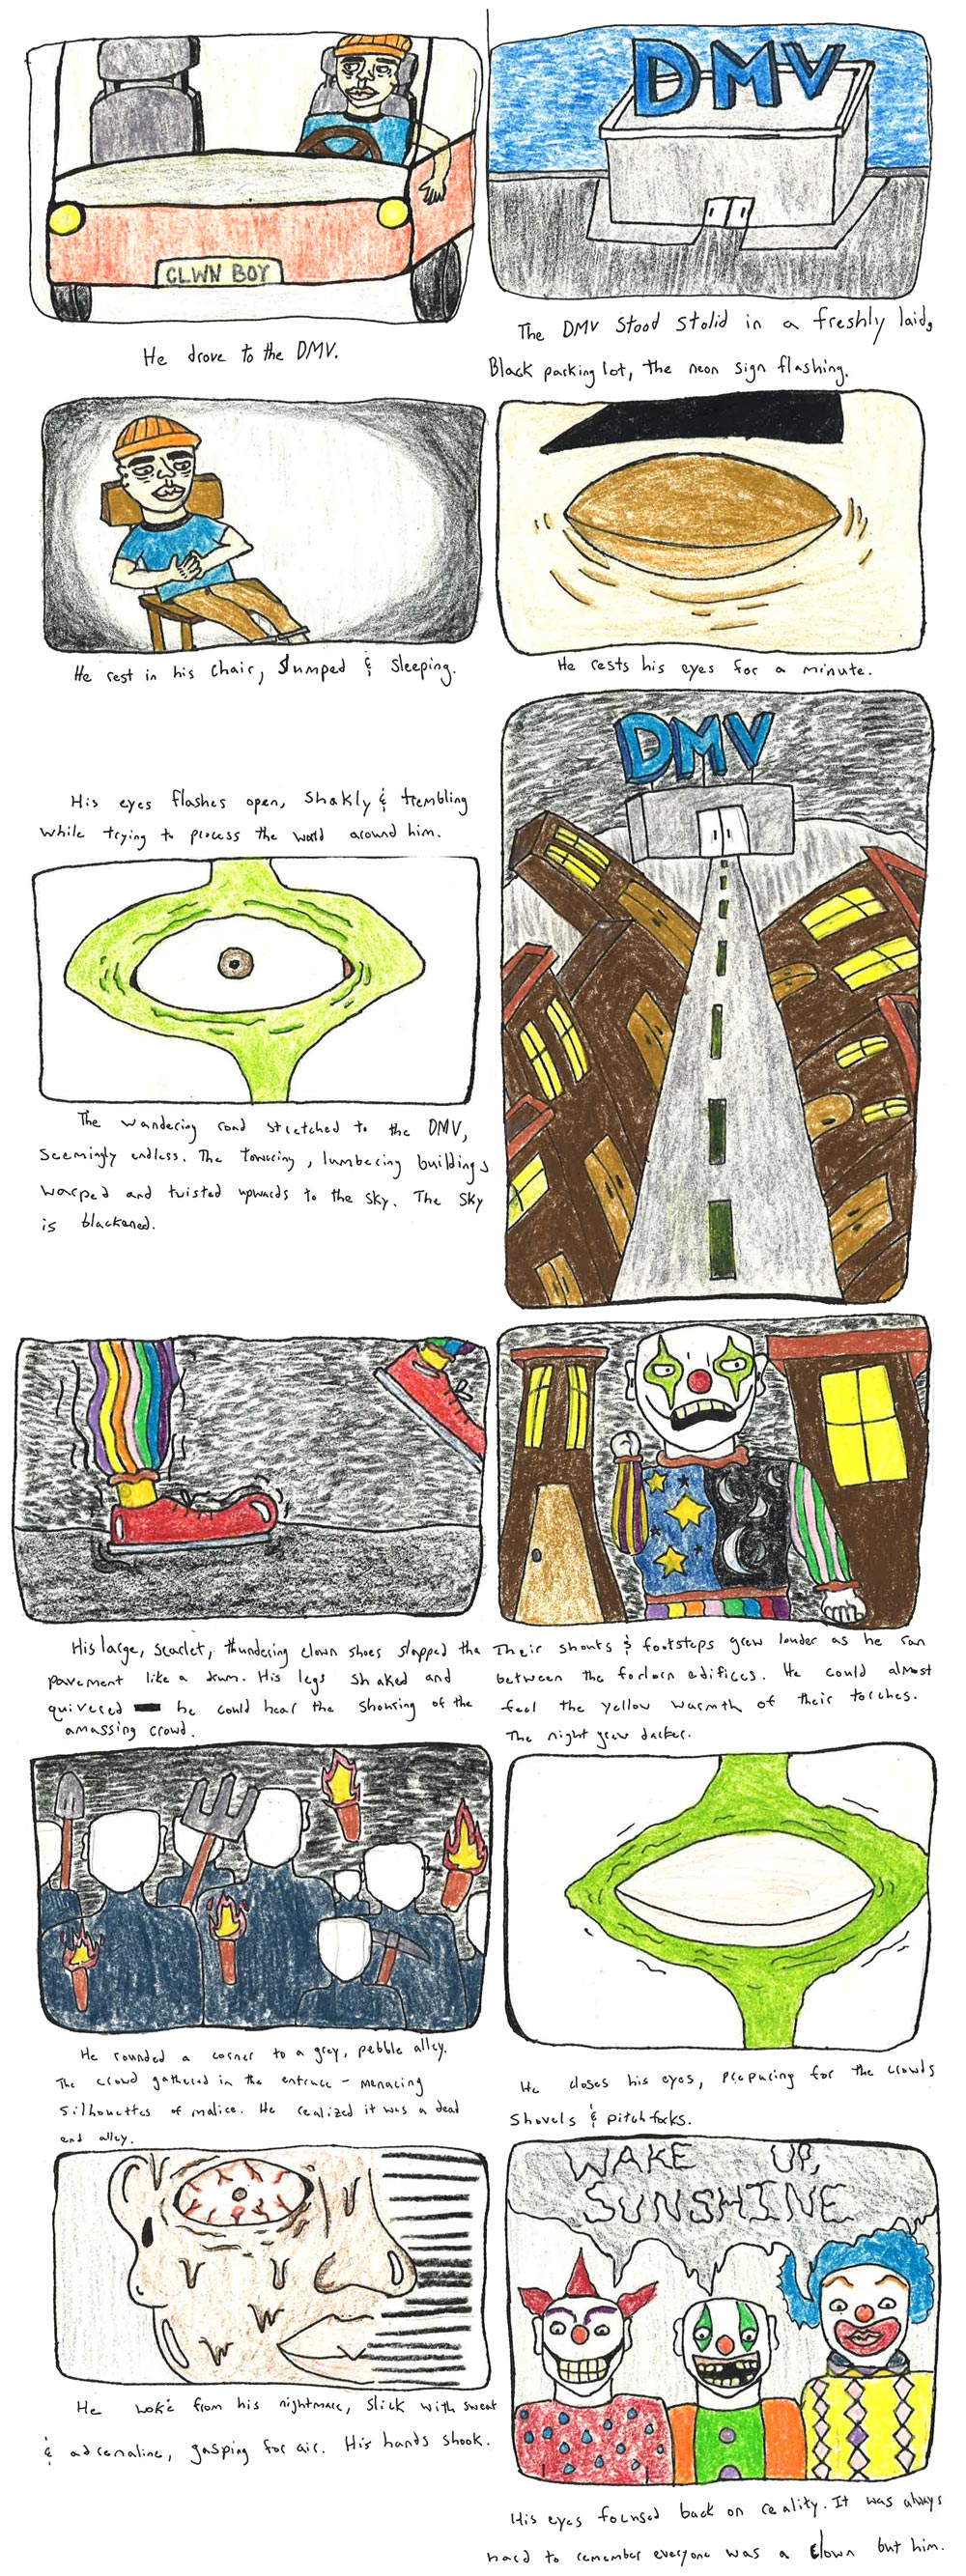 CLWN BOY
He drove to the DMV.
DMV
The DMV stood stolid in a freshly laid,
Black parking lot, the neon sign flashing.
He rest in his chair, slumped & sleeping.
He rests his eyes for a minute.
His eyes flashes open, shakly & trembling
while trying to process the world around him.
The wandering road stretched to the DMV,
seemingly endless. The towering, lumbering buildings
warped and twisted upwards to the sky. The sky
is blackened.
DMV
His large, scarlet, thundering clown shoes slapped the
pavement like a drum. His legs shaked and
quivered he could hear the shousing of the
amassing crowd.
Their shouts & footsteps grew louder as he ran
between the forlorn edifices. He could almost
feel the yellow warmth of their torches.
The night grew darker.
He rounded a corner to a grey, pebble alley.
The crowd gathered in the entrance - menacing
silhouettes of malice. He realized it was a dead
end alley.
He closes his eyes, preparing for the crowds
shovels & pitchforks.
He woke from his nightmare, slick with sweat
& adrenaline, gasping for air. His hands shook.
WAKE UP,
SUNSHINE
His eyes focused back on reality. It was always
hard to remember everyone was a clown but him.